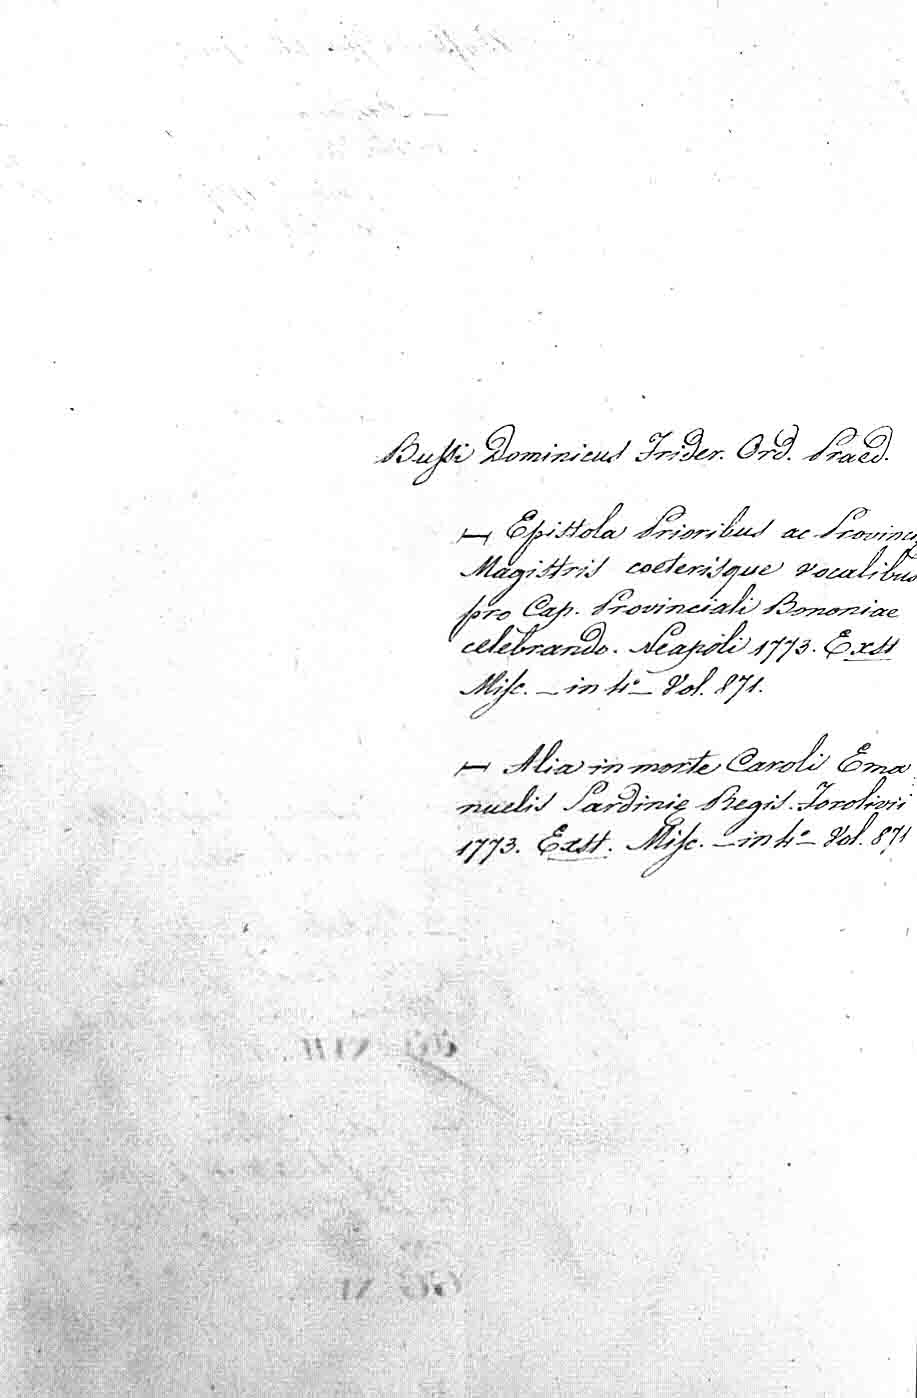 Bussi Dominicus Frider. Ord. Praed.
— Epistola Prioribus ac Provinci
Magistris coeterisque vocalibus
pro Cap. Provinciali Bononiae
celebrando. Neapoli 1773. Exst
Misc. — in 4° — Vol. 871.
— Alia in morte Caroli Ema
nuelis Sardinię Regis. Forolivii
1773. Exst. Misc. — in 4° — Vol. 871